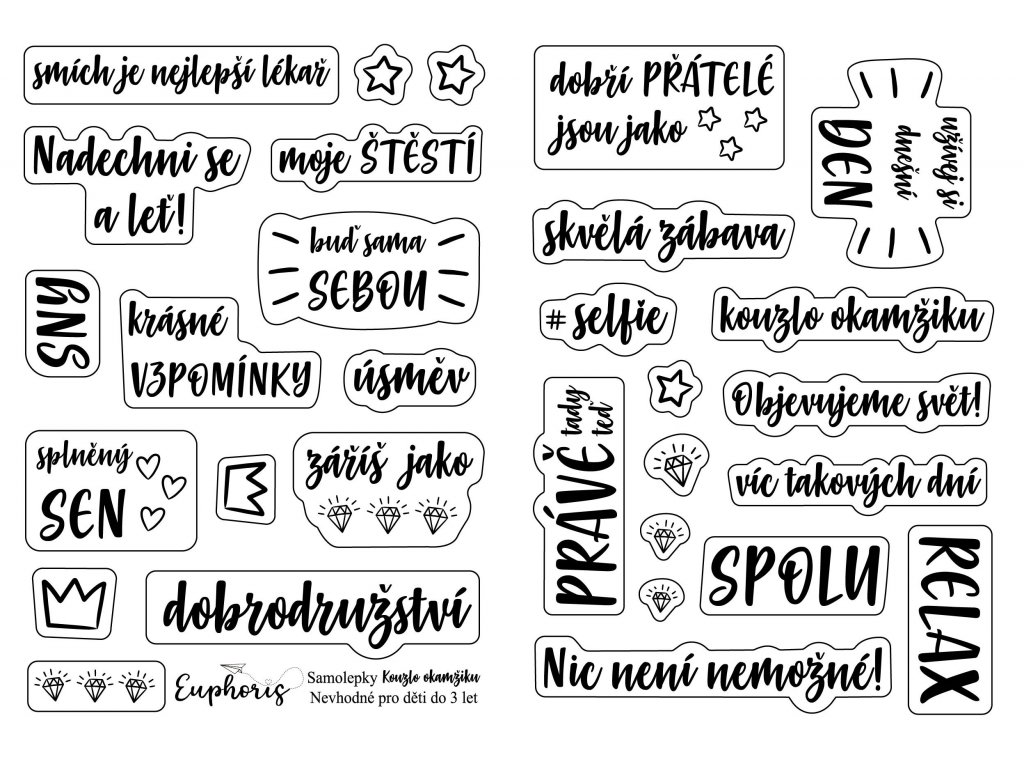 smích je nejlepší lékař
Nadechni se
a leť!
moje ŠTĚSTÍ
buď sama
SEBOU
SNY
krásné
VZPOMÍNKY
úsměv
splněný
SEN
záříš jako
dobrodružství
Euphoris
Samolepky Kouzlo okamžiku
Nevhodné pro děti do 3 let
dobří PŘÁTELÉ
jsou jako
užívej si
dnešní
DEN
skvělá zábava
#selfie
kouzlo okamžiku
PRÁVĚ
tady
teď
Objevujeme svět!
víc takových dní
SPOLU
RELAX
Nic není nemožné!